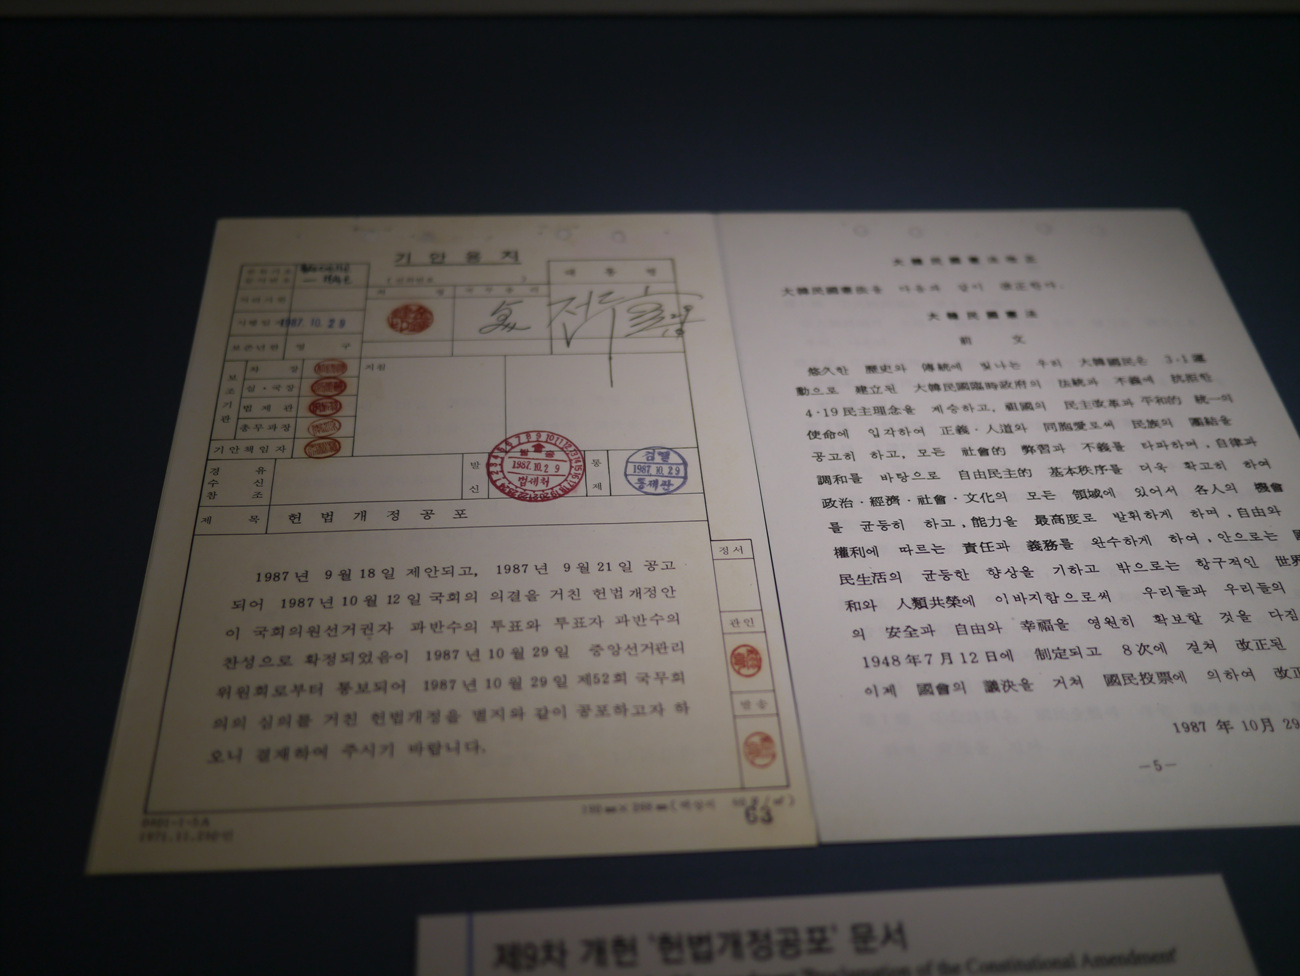 기 안 용 지
대 통 령
1987. 10. 2 9
보존년한 영 구
차 장
보조기관
실·국장
법 제 관
총무과장
기안책임자
경 유
수 신
참 조
발 신
1987.10.2 9
법제처
통 제
검열
1987.10.2 9
통제관
제 목 헌 법 개 정 공 포
정서
1987년 9월 18일 제안되고, 1987년 9월 21일 공고
되어 1987년 10월 12일 국회의 의결을 거친 헌법개정안
이 국회의원선거권자 과반수의 투표와 투표자 과반수의
찬성으로 확정되었음이 1987년 10월 29일 중앙선거관리
위원회로부터 통보되어 1987년 10월 29일 제52회 국무회
의의 심의를 거친 헌법개정을 별지와 같이 공포하고자 하
오니 결재하여 주시기 바랍니다.
관인
발송
63
大韓民國憲法改正
大韓民國憲法을 다음과 같이 改正한다.
大韓民國憲法
前 文
悠久한 歷史와 傳統에 빛나는 우리 大韓國民은 3·1運
動으로 建立된 大韓民國臨時政府의 法統과 不義에 抗拒한
4·19民主理念을 계승하고, 祖國의 民主改革과 平和的 統一의
使命에 입각하여 正義·人道와 同胞愛로써 民族의 團結을
공고히 하고, 모든 社會的 弊習과 不義를 타파하며, 自律과
調和를 바탕으로 自由民主的 基本秩序를 더욱 확고히 하여
政治·經濟·社會·文化의 모든 領域에 있어서 各人의 機會
를 균등히 하고, 能力을 最高度로 발휘하게 하며, 自由와
權利에 따르는 責任과 義務를 완수하게 하여, 안으로는
民生活의 균등한 향상을 기하고 밖으로는 항구적인 世界
和와 人類共榮에 이바지함으로써 우리들과 우리들의
의 安全과 自由와 幸福을 영원히 확보할 것을 다짐
1948年7月12日에 制定되고 8次에 걸쳐 改正된
이제 國會의 議決을 거쳐 國民投票에 의하여 改正
1987 年 10月 29
—5—
제9차 개헌 '헌법개정공포' 문서
Proclamation of the Constitutional Amendment